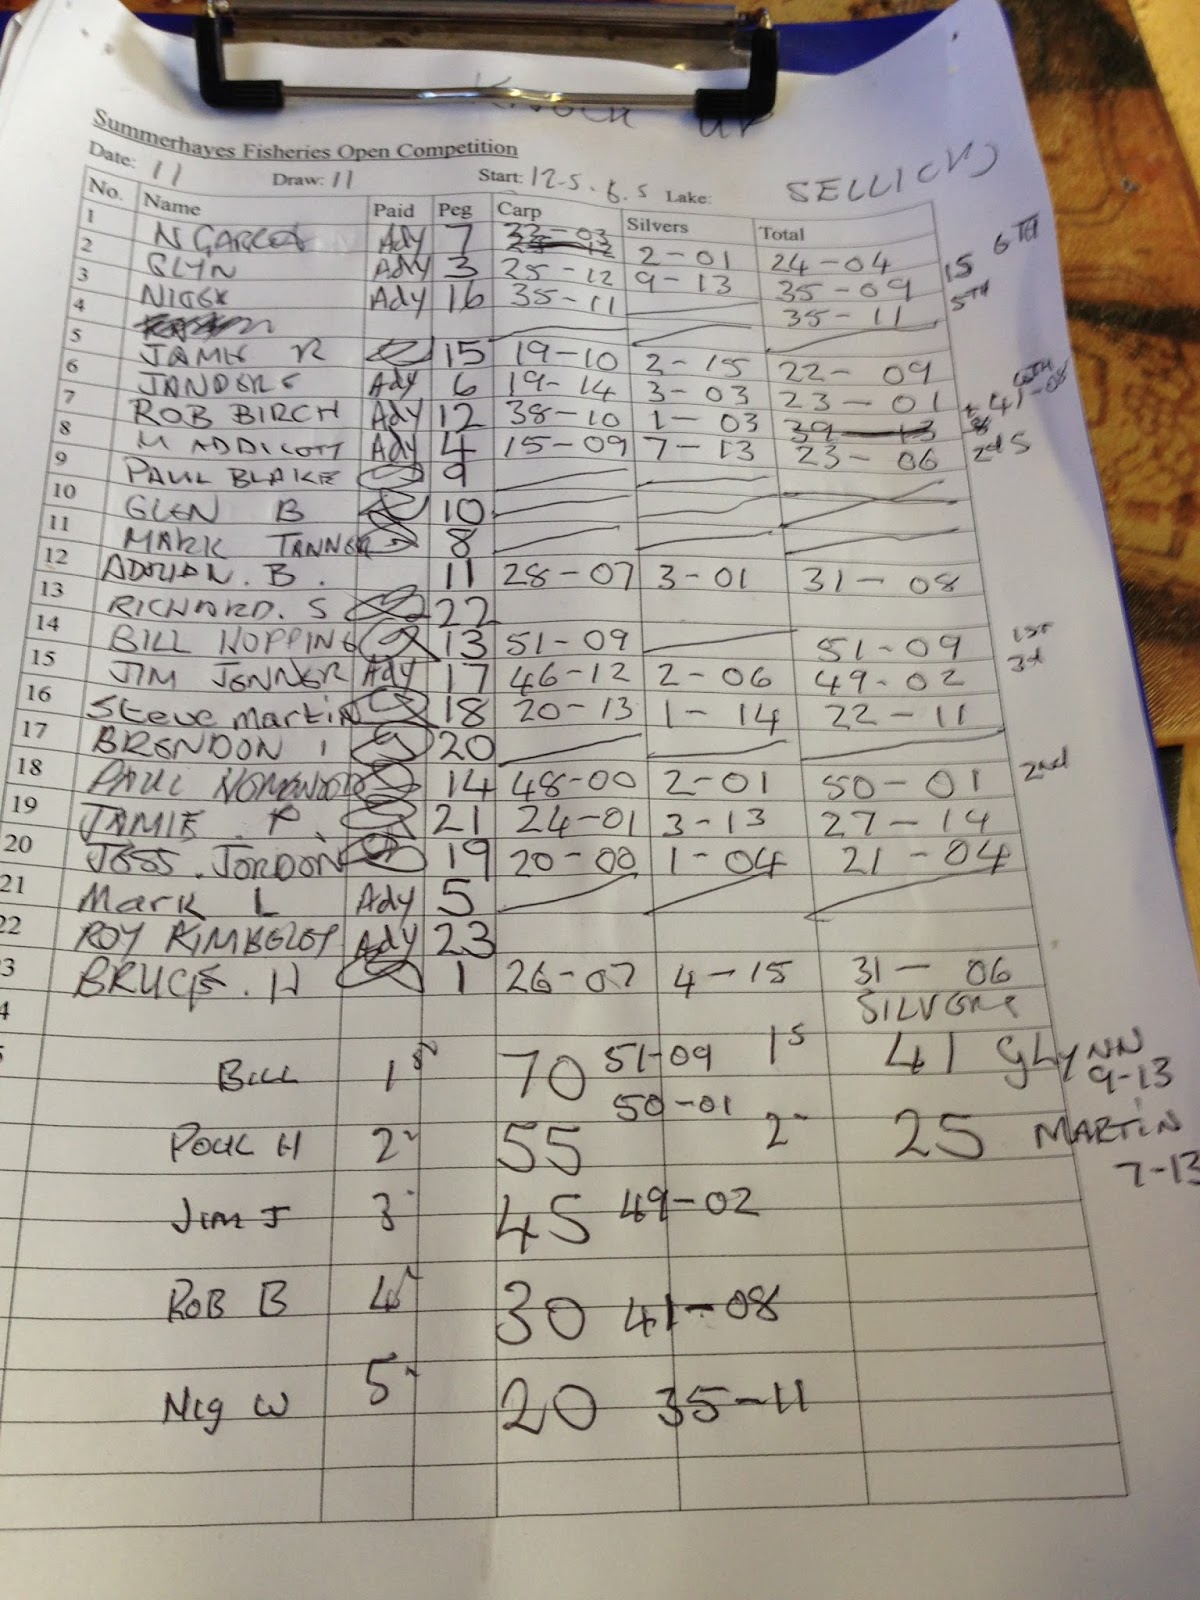 KNOCK UP
Summerhayes Fisheries Open Competition
Date: 11 Draw: 11 Start: 12-5. 6.5 Lake: SELLICKS
No. Name Paid Peg Carp Silvers Total
1 N Ady 7 2-01 24-04
2 GLYN Ady 3 25-12 9-13 35-09 1S 6TH
3 NIGEW Ady 16 35-11 35-11 5TH
4
5 JAMIE R 15 19-10 2-15 22-09
6 JANDERS Ady 6 19-14 3-03 23-01
7 ROB BIRCH Ady 12 38-10 1-03 39-13 41-08
8 M ADDICOTT Ady 4 15-09 7-13 23-06 2nd S
9 PAUL BLAKE 9
10 GLEN B 10
11 MARK TANNER 8
12 ADRIAN. B. 11 28-07 3-01 31-08
13 RICHARD. S 22
14 BILL HOPPING 13 51-09 51-09 1ST
15 JIM JENNER Ady 17 46-12 2-06 49-02 3rd
16 Steve martin 18 20-13 1-14 22-11
17 BRENDON 20
18 PAUL 14 48-00 2-01 50-01 2nd
19 JAMIE. P. 21 24-01 3-13 27-14
20 JESS. JORDON 19 20-00 1-04 21-04
21 Mark L Ady 5
22 ROY KIMBERLEY Ady 23
23 BRUCE. H 1 26-07 4-15 31-06
4 SILVERS
5 BILL 1st 70 51-09 1S 41 GLYNN 9-13
PAUL H 2 55 50-01 2 25 MARTIN 7-13
JIM J 3 45 49-02
ROB B 4 30 41-08
NIG W 5 20 35-11